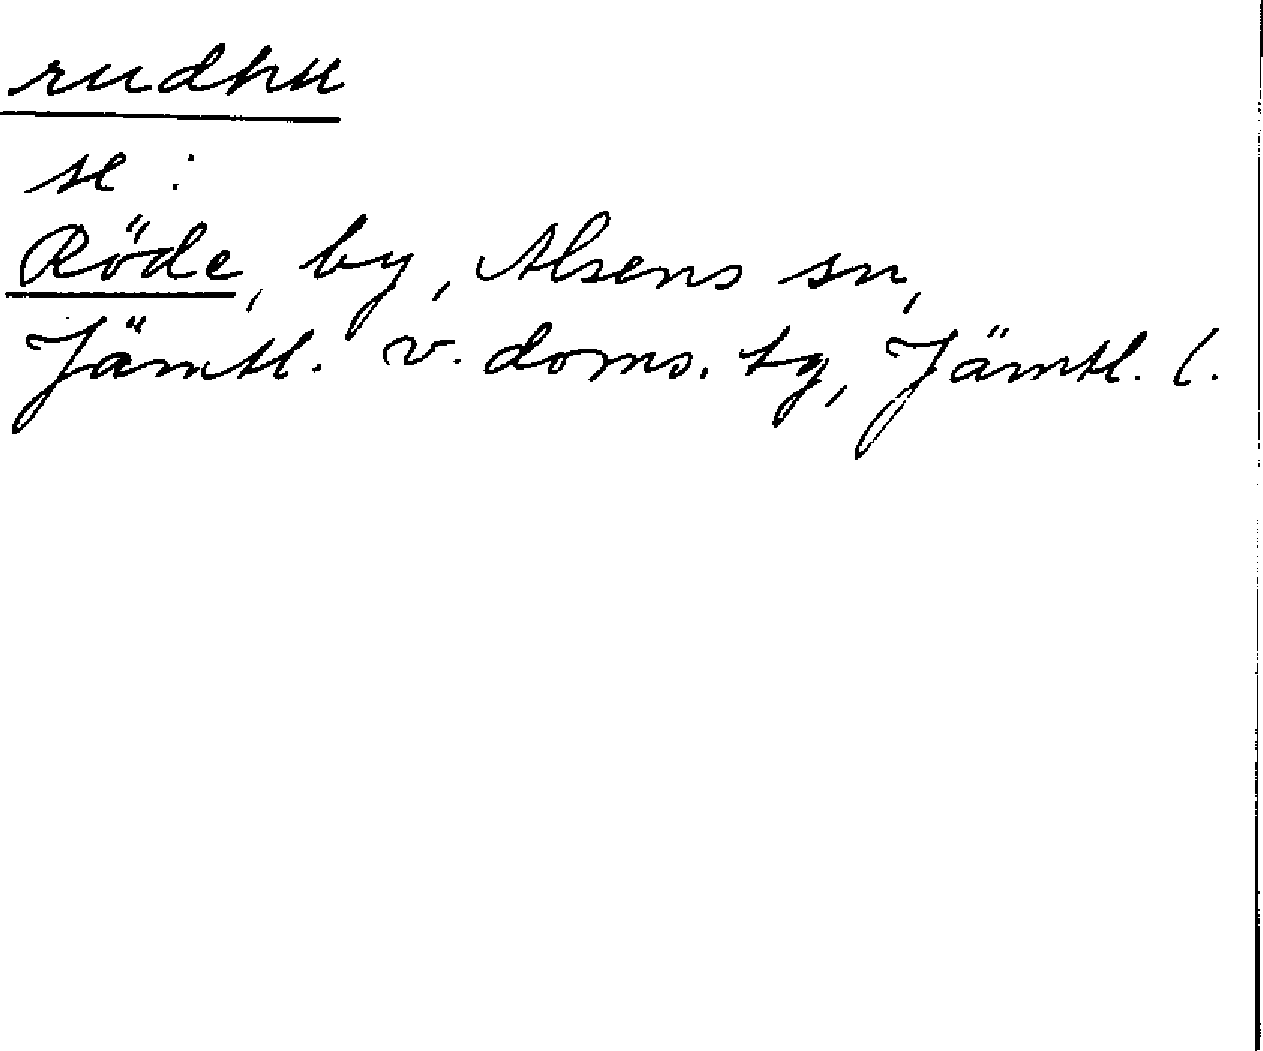 rudhu
se :
Röde, by, Alsens sn,
Jämtl. v. doms. tg, Jämtl. l.